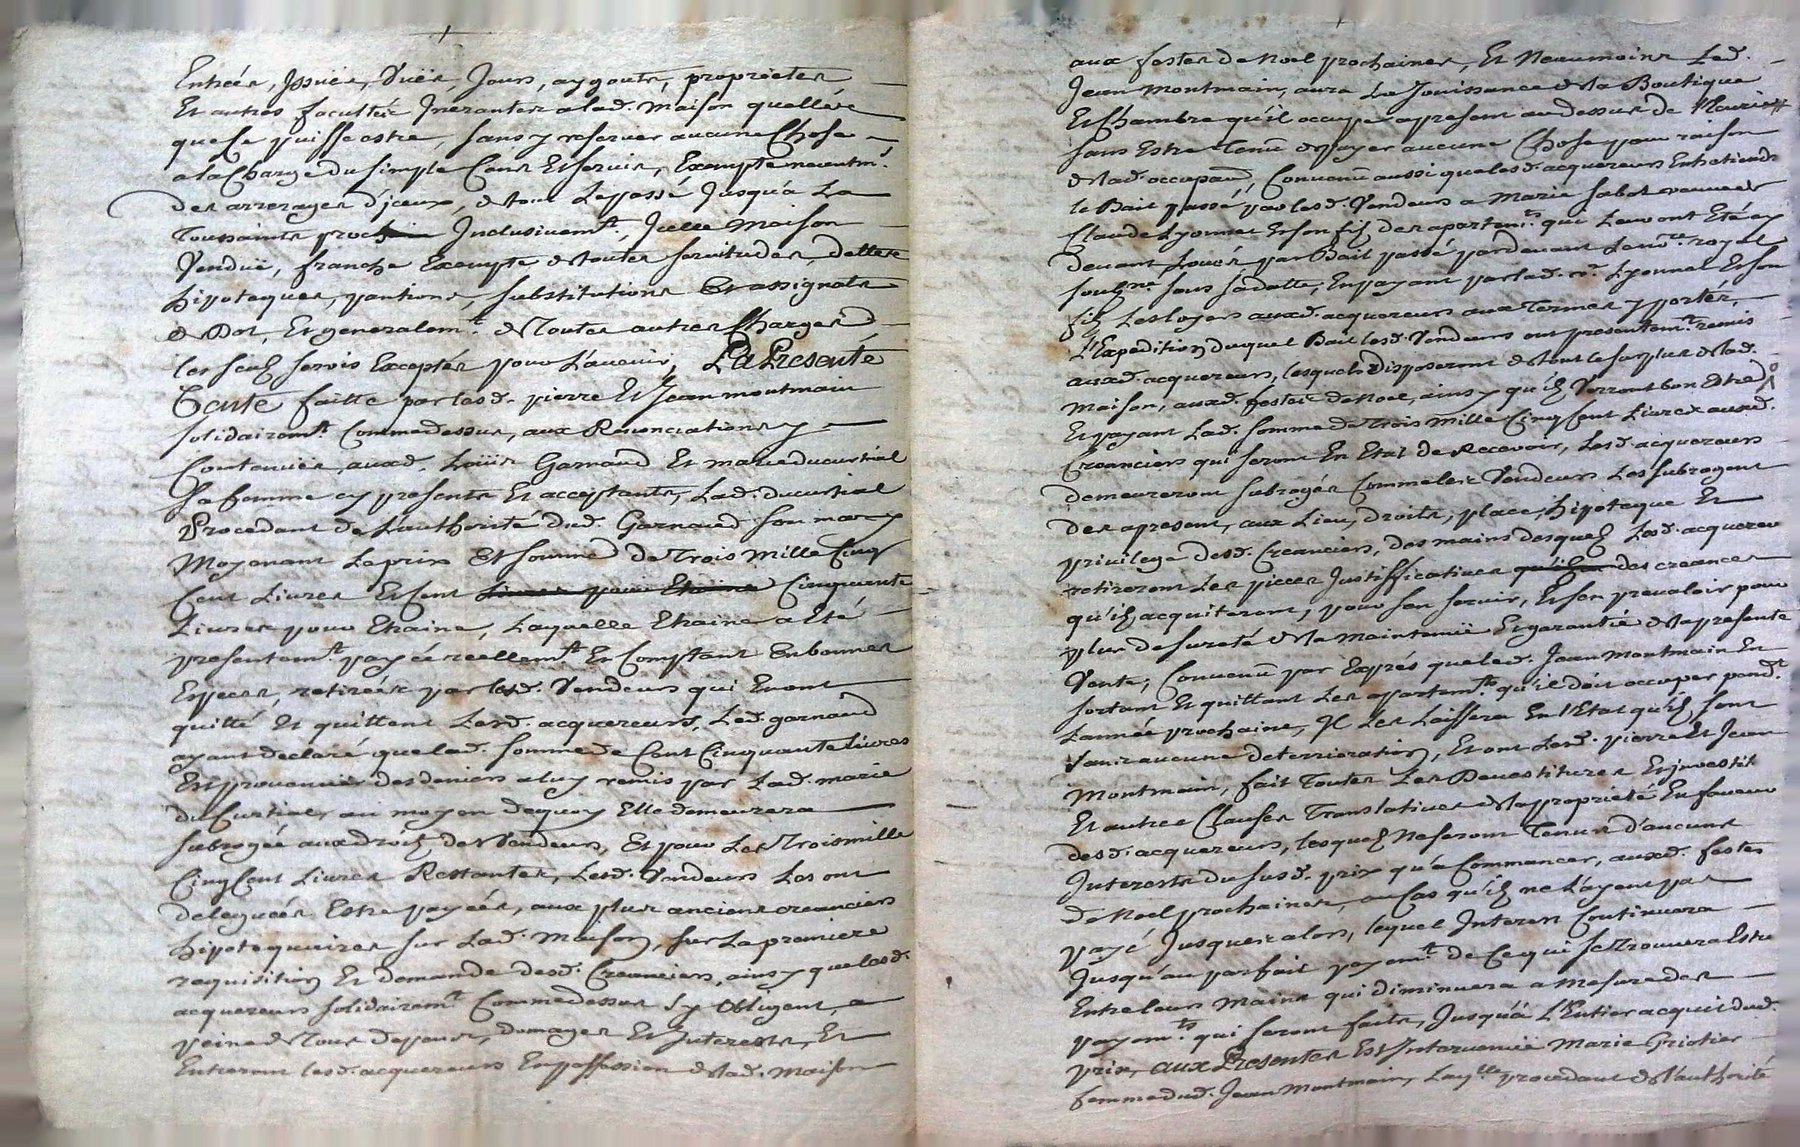 Entrées, Issuës, Vuës, Jours, aygouts, proprietes
Et autres facultés Inerantes a lad. Maison quelle
que ce puisse estre, sans y reserver aucune Chose
a la Charge du simple Cens Et servis, Exempte neantm.t
des arrerages d'jceux, de tout Le passé Jusqu'a La
Toussaints proch Inclusivem.t, Icelle Maison
Venduë, franche Exempte de toutes servitudes, dettes
hipoteques, pantions, substitutions Et assignats
de Dot, Et generalem.t de Toutes autres Charges
les seuls servis Exceptés pour L'avenir, La Presente
Vente faitte par lesd. pierre Et Jean montmain
solidairem.t Comme dessus, aux Renonciations y
Contenuës, auxd. Loüis Garnaud Et marie ducurtial
sa femme cy presents Et acceptants, Lad. ducurtial
Procedant de L'authorité dud. Garnaud son mary
Moyenant Le prix Et somme de Trois mille Cinq
Cent Livres Et Cent Livres pour Etraine Cinquante
Livres pour Etraine, Laquelle Etraine a Eté
presentem.t payée reellem.t Et Comptant En bonnes
Especes, retirées par lesd. Vendeurs qui En ont
quitté Et quittent Lesd. acquereurs, Led. garnaud
ayant declaré que lad. somme de Cent Cinquante Livres
Est provenuë des deniers a luy remis par Lad. marie
du Curtial, au moyen de quoy Elle demeurera
subrogée aux droits des Vendeurs, Et pour Les Trois mille
Cinq Cent Livres Restantes, Lesd. Vendeurs Les ont
deleguées Estre payées, aux plus anciens creanciers
hipotequaires sur Lad. Maison, sur La premiere
requisition Et demande desd. Creanciers, ainsy que lesd.
acquereurs solidairem.t Comme dessus s'y obligent, a
peine de Tous depens, domages Et Interests, Et
Entreront lesd. acquereurs En possession de lad. Maison
aux festes de Noel prochaines, Et Neanmoins Led.
Jean Montmain, aura La Jouissance de la Boutique
Et Chambre qu'il occupe a present au dessus de
sans Estre Tenu de payer aucune Chose pour raison
de lad. occupaon, Convenu aussi que lesd. acquereurs Entretiendr
le Bail passé par lesd. Vendeurs a Marie sabot veuve de
Claude Lyonnet Et son fils des apartem.ts qui Leur ont Eté cy
devant Loués par Bail passé par devant Le no.re royal
soubs.né sous sa datte, En payant par lad. v.e Lyonnet Et son
fils Les loyers auxd. acquereurs aux Termes y portés,
L'Expedition duquel Bail lesd. Vendeurs ont presentem.t remis
auxd. acquereurs, lesquels disposeront de tout le surplus de lad.
maison, auxd. festes de Noel, ainsy qu'ils Verront bon Estre
Et payant Lad. somme de Trois mille Cinq Cent Livres auxd.
Creanciers qui seront En Etat de Recevoir, Lesd. acquereurs
demeureront subrogés Comme les Vendeurs Les subrogent
des apresent, aux Lieu, droits, place, hipoteque Et
privilege desd. Creanciers, des mains desquels Lesd. acquereurs
retireront Les pieces Justifficatives qu'ils des creances
qu'ils acquiteront, pour s'en servir, Et s'en prevaloir pour
plus de sureté de la Maintenuë Et garantie de la presente
Vente, Convenu par Exprés que led. Jean Montmain En
sortant Et quittant Les apartem.ts qu'il doit occuper pend.t
L'année prochaine, Il Les Laissera En l'Etat qu'ils sont
sans aucune deterioration, Et ont Lesd. pierre Et Jean
Montmain, fait Toutes Les Devestitures Et Jnvestit
Et autres Clauses Translatives de la proprieté En faveur
desd. acquereurs, lesquels Ne seront Tenus d'aucuns
Interests du susd. prix qu'a Commencer, auxd. festes
de Noel prochaines, au Cas qu'ils ne L'ayent pas
payé Jusques alors, lequel Interest Continuera
Jusqu'au parfait payem.t de Ce qui se Trouvera Estre
Entre leurs Mains qui diminuera a Mesure des
payem.ts qui seront faits, Jusqu'à L'Entier acquit dud.
prix, aux Presentes Est Intervenuë Marie
femme dud. Jean Montmain, Laq.lle procedant de l'authorité